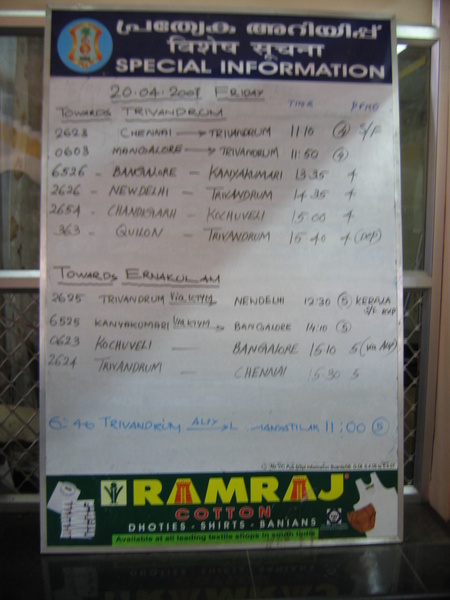 പ്രത്യേക അറിയിപ്പ്
विशेष सूचना
SPECIAL INFORMATION
20-04-2007 FRIDAY
TOWARDS TRIVANDRUM TIME PFNO
2623 CHENNAI → TRIVANDRUM 11.10 (4) S/F
0603 MANGALORE → TRIVANDRUM 11:50 (4)
6526 - BANGALORE - KANYAKUMARI 13.35 4
2626 - NEWDELHI - TRIVANDRUM 14.35 4
2654 - CHANDIGARH - KOCHUVELI 15.00 4
363 - QUILON - TRIVANDRUM 15.40 4 (DEP)
TOWARDS ERNAKULAM
2625 TRIVANDRUM Via KTYM NEWDELHI 12:30 (5) KERALA
S/F EXP
6525 KANYAKUMARI Via KTYM → BANGALORE 14:10 (5)
0623 KOCHUVELI - BANGALORE 15.10 5 (via ALY)
2624 TRIVANDRUM - CHENNAI 15.30 5
TRIVANDRUM ALLY 11:00 (5)
RAMRAJ
COTTON
DHOTIES - SHIRTS - BANIANS
Available at all leading textile shops in south India